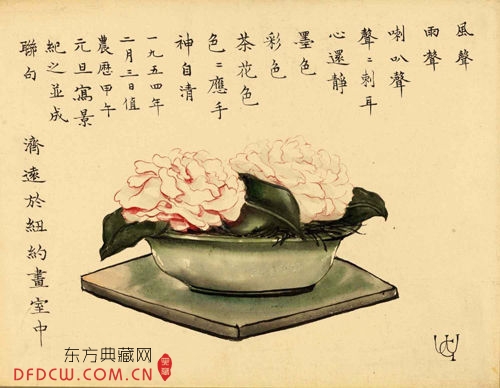 風聲
雨聲
喇叭聲
聲〻刺耳
心還靜
墨色
彩色
茶花色
色〻應手
神自清
一九五四年
二月三日值
農歷甲午
元旦寫景
紀之並成
聯句
濟遠於紐約畫室中
东方典藏网
DFDCW.COM.CN